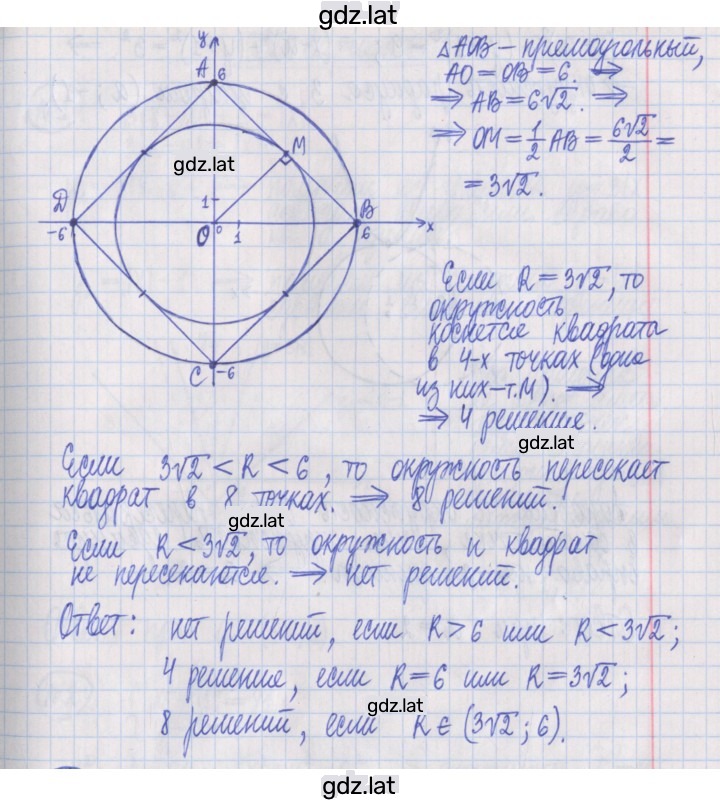 gdz.lat
y
A 6
△AOB – прямоугольный,
AO = OB = 6. ⇒
⇒ AB = 6√2. ⇒
⇒ OM = 1/2 AB = 6√2/2 =
= 3√2.
M
gdz.lat
D
B
1
-6
O
0
1
6
x
C
-6
Если R = 3√2, то
окружность
коснется квадрата
в 4-х точках (одна
из них – т.M). ⇒
⇒ 4 решения.
gdz.lat
Если 3√2 < R < 6, то окружность пересекает
квадрат в 8 точках. ⇒ 8 решений.
gdz.lat
Если R < 3√2, то окружность и квадрат
не пересекаются. ⇒ нет решений.
Ответ: нет решений, если R > 6 или R < 3√2;
4 решения, если R = 6 или R = 3√2;
gdz.lat
8 решений, если R ∈ (3√2; 6).
gdz.lat